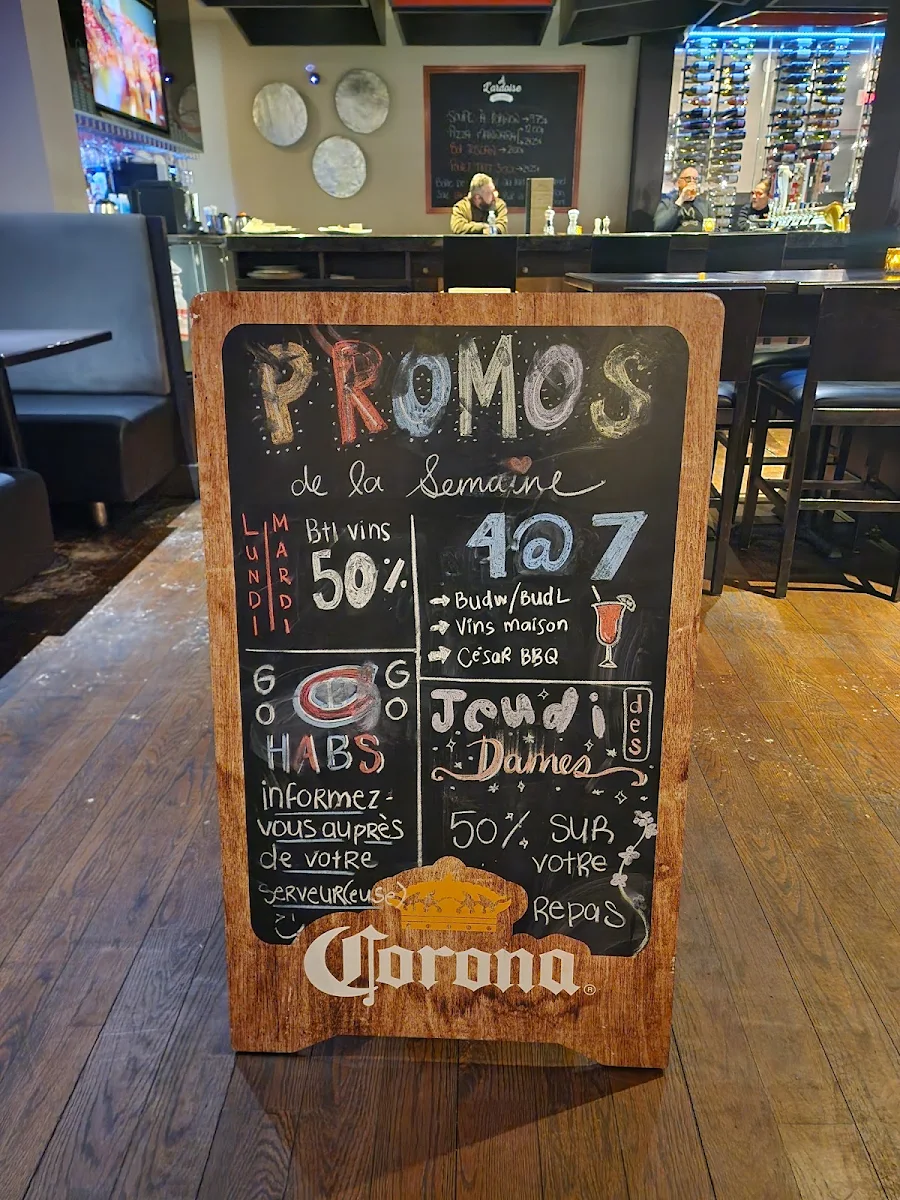 L'ardoise
PROMOS
de la Semaine
LUNDI
MARDI
Btl vins
50%
4@7
Budw/BudL
Vins maison
César BBQ
GO
GO
HABS
informez-
vous auprès
de votre
serveur(euse)
Jeudi
des
Dames
50% SUR
votre
Repas
Corona®